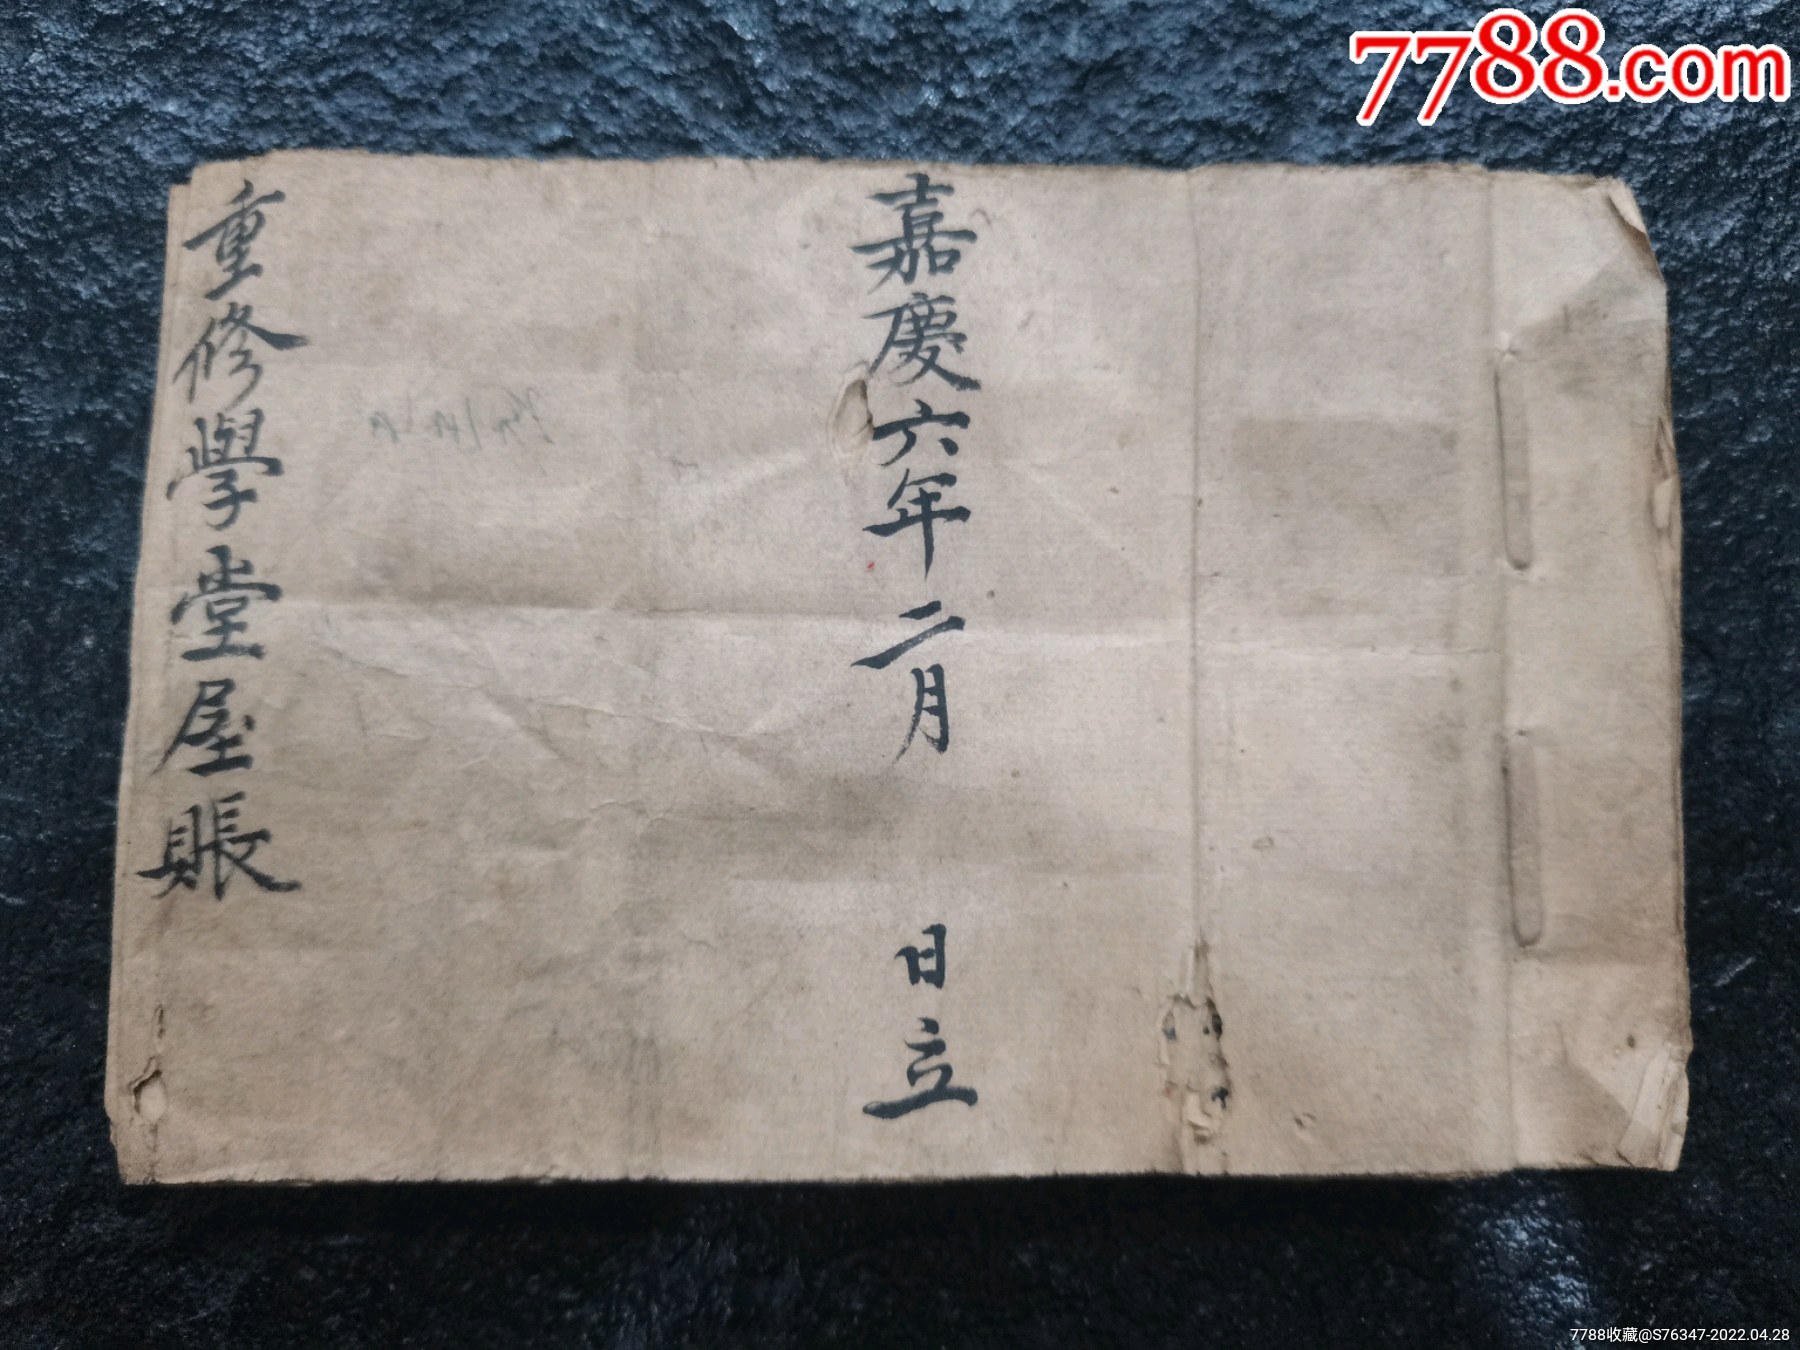 7788.com
嘉慶六年二月 日立
重修學堂屋賬
7788收藏@S76347-2022.04.28